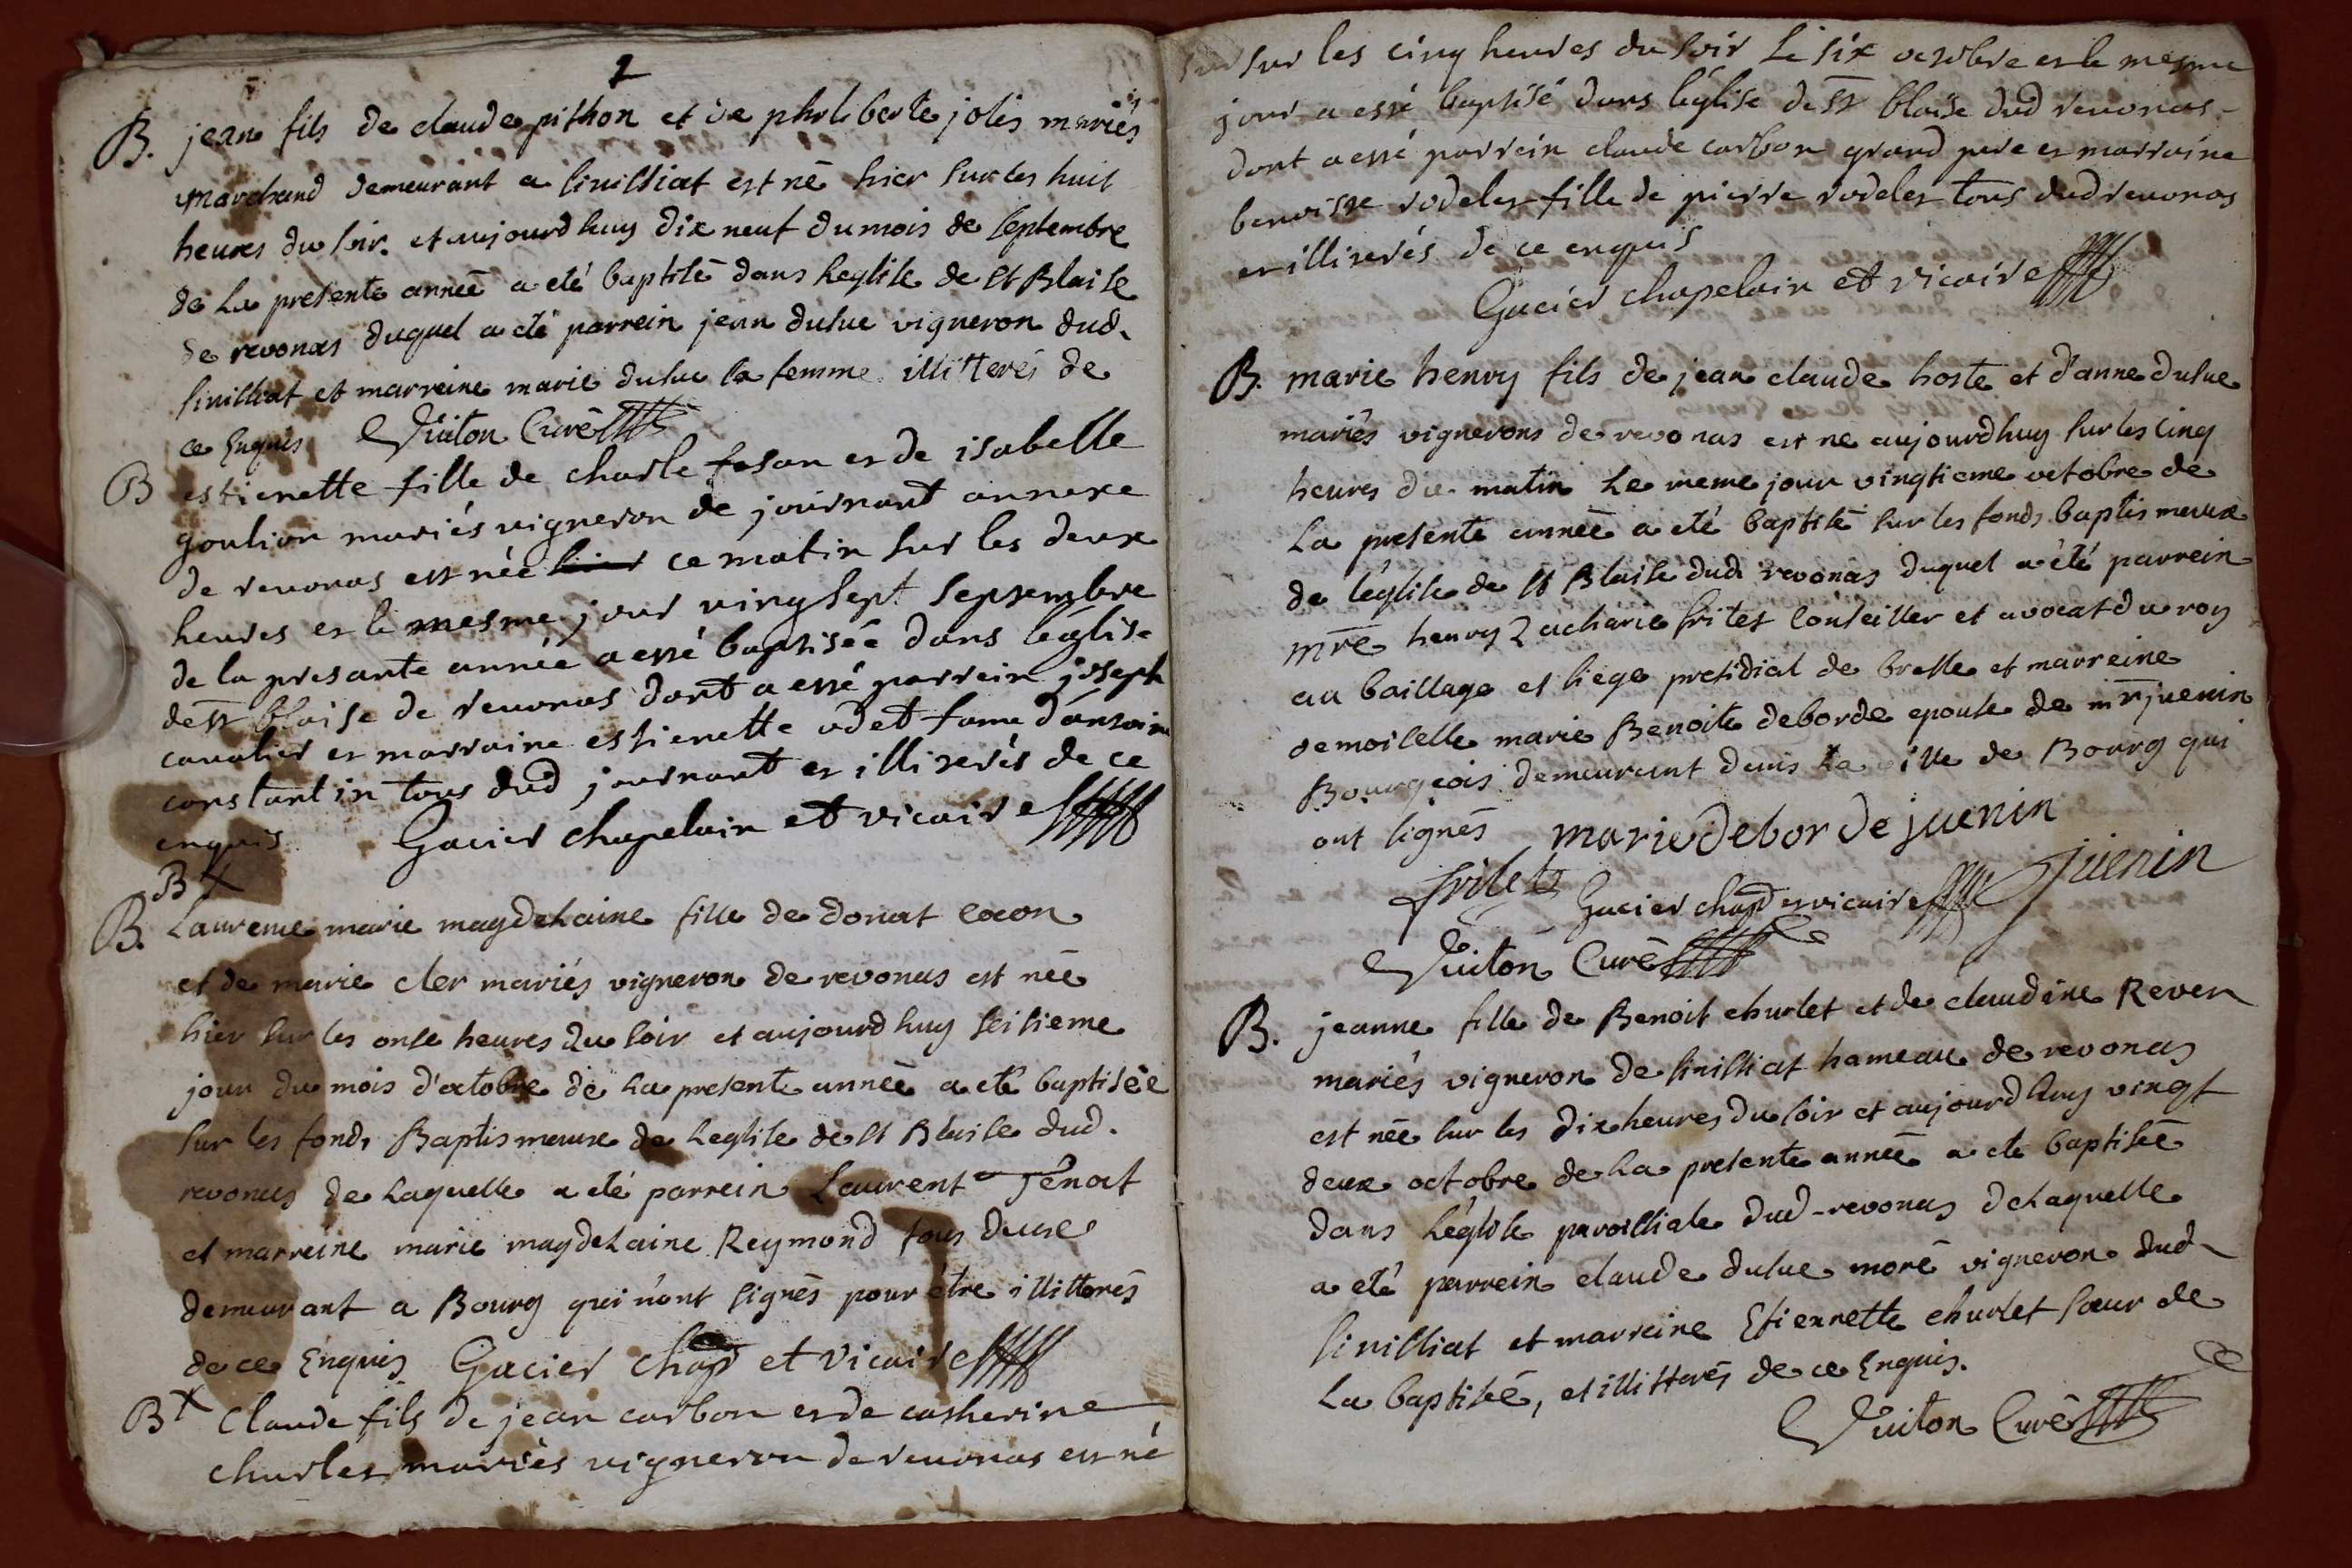 1
B. jean fils de claude pithon et de philiberte jolis mariés
marchand demeurant a sinilliat est né hier sur les huit
heures du soir. et aujourdhuy dix neuf du mois de septembre
de La presente année a eté baptisé dans leglise de st Blaise
de revonas duquel a eté parrein jean dulue vigneron dud.
sinilliat et marreine marie dulue sa femme illitterés de
ce Enquis Vuiton Curé
B estienette fille de charle et de isabelle
goulion mariés vigneron de journant annexe
de revonas est née ce matin sur les deux
heures et le mesme jour vingsept septembre
de la presante année a esté baptisée dans léglise
de st blaise de revonas dont a esté parrein joseph
cavalier et marraine estienette odet fame dantoine
constantin tous dud journant et illiterés de ce
enquis Gacier chapelain et vicaire
B
B. Laurence marie magdelaine fille de donat cocon
et de marie cler mariés vigneron de revonas est née
hier sur les onse heures du soir et aujourdhuy seisieme
jour du mois d'octobre de La presente année a eté baptisée
sur les fonds Baptismeaux de Leglise de st Blaise dud.
revonas de Laquelle a eté parrein Laurent Jénat
et marreine marie magdelaine Reymond tous deux
demeurant a Bourg qui n'ont signés pour étre illitterés
de ce Enquis Gacier chap et vicaire
B Claude fils de jean carbon et de catherine
charles mariés vigneron de revonas est né
sur les cinq heures du soir Le six octobre et le mesme
jour a esté baptisé dans léglise de st blaise dud revonas
dont a esté parrein claude carbon grand pere et marraine
benoiste rodelet fille de pierre rodelet tous dud revonas
et illiterés de ce enquis
Gacier chapelain et vicaire
B. marie henry fils de jean claude hoste et d'anne dulue
mariés vignerons de revonas est né aujourdhuy sur les cinq
heures du matin Le meme jour vingtieme octobre de
La presente année a eté baptisé sur les fonds baptismeaux
de léglise de st Blaise dud revonas duquel a été parrein
mre henry Zacharie fritet conseiller et avocat du roy
au baillage et siege presidial de bresse et marreine
demoiselle marie Benoite deborde epouse de mr juenin
Bourgeois demeurant dans La ville de Bourg qui
ont signés marie debordejuenin
fritet Gacier chap et vicaire juenin
Vuiton Curé
B. jeanne fille de Benoit churlet et de claudine Rever
mariés vigneron de sinilliat hameau de revonas
est née sur les dix heures du soir et aujourdhuy vingt
deux octobre de La presente année a eté baptisée
dans Léglise paroissiale dud-revonas de Laquelle
a eté parrein claude dulue moré vigneron dud
sinilliat et marreine Etiennette churlet sœur de
La baptisée, et illitterés de ce Enquis.
Vuiton Curé